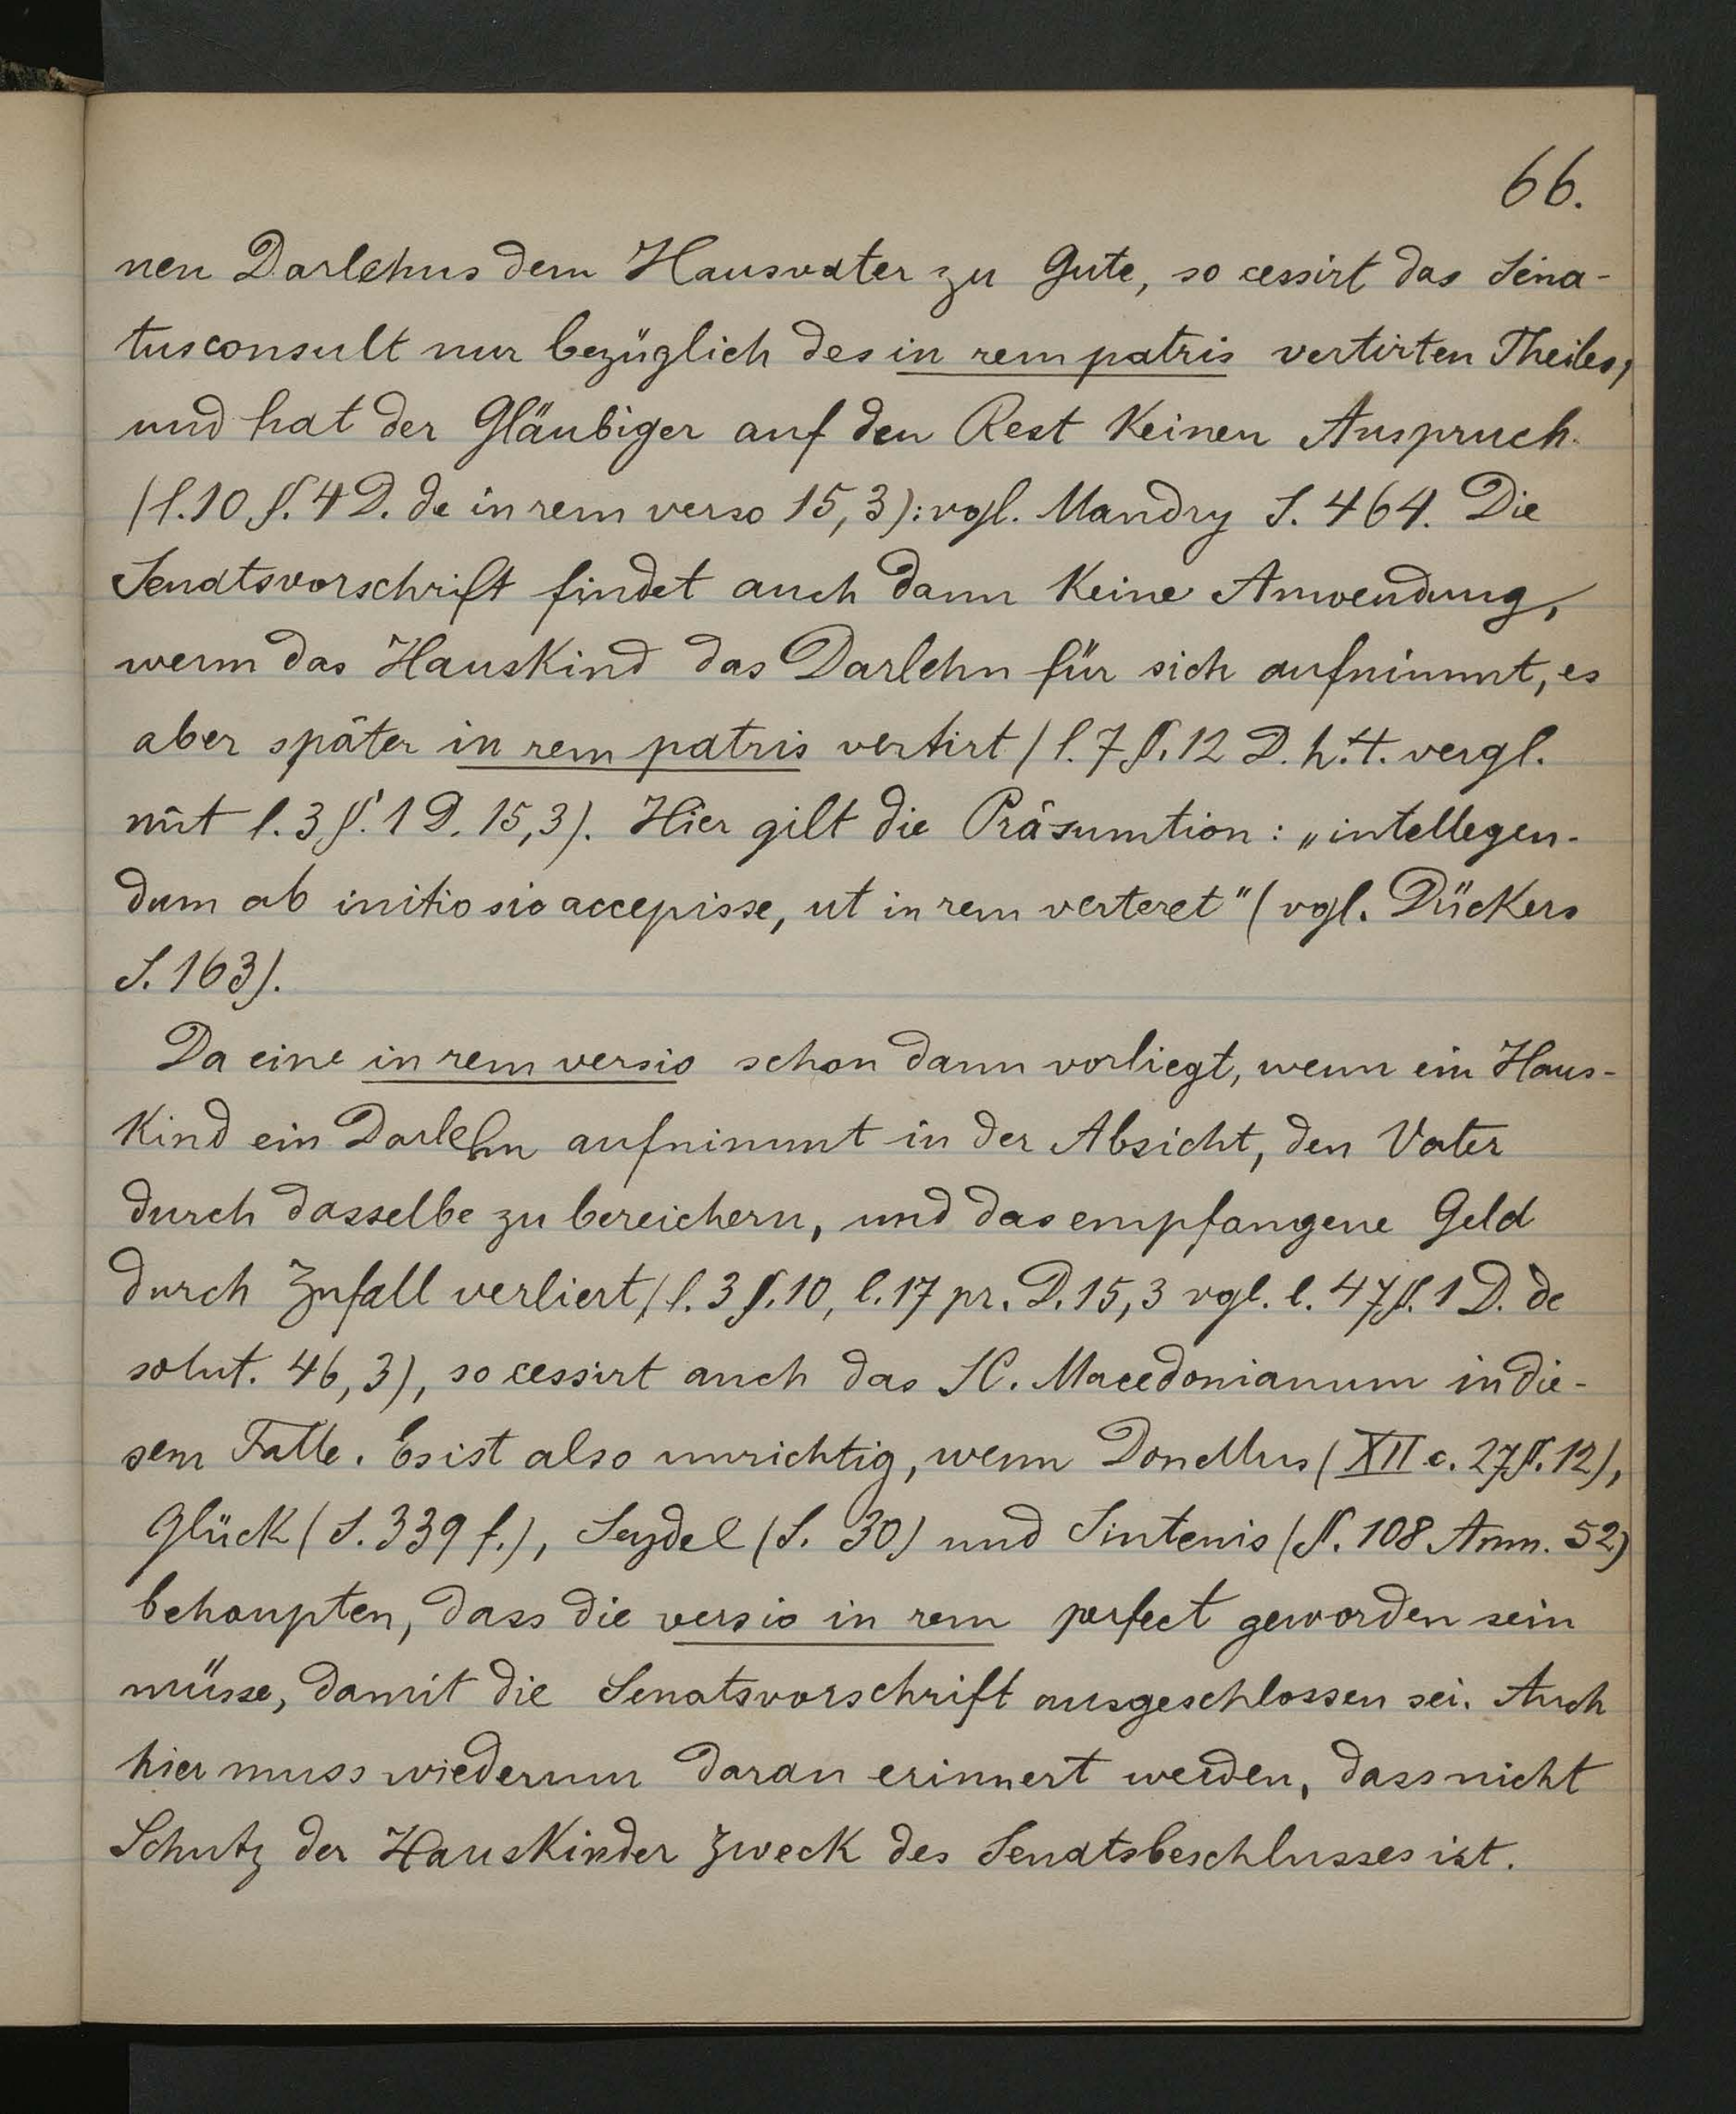 66.
nen Darlehns dem Hausvater zu Gute, so cessirt das Sena-
tusconsult nur bezüglich des in rem patris vertirten Theiles,
und hat der Gläubiger auf den Rest keinen Anspruch
(l. 10 §. 4 D. de in rem verso 15,3): vgl. Mandry S. 464. Die
Senatsvorschrift findet auch dann keine Anwendung,
wenn das Hauskind das Darlehn für sich aufnimmt, es
aber später in rem patris vertirt (l. 7 §. 12 D. h. t. vergl.
mit l. 3 §. 1 D. 15,3). Hier gilt die Präsumtion: „intellegen-
dum ab initio sic accepisse, ut in rem verteret" (vgl. Dückers
S. 163).
Da eine in rem versio schon dann vorliegt, wenn ein Haus-
kind ein Darlehn aufnimmt in der Absicht, den Vater
durch dasselbe zu bereichern, und das empfangene Geld
durch Zufall verliert (l. 3 §. 10, l. 17 pr. D. 15,3 vgl. l. 47 §. 1 D. de
solut. 46,3), so cessirt auch das SC. Macedonianum in die-
sem Falle. Es ist also unrichtig, wenn Donellus (XII c. 27 §. 12),
Glück (S. 339 f.), Seydel (S. 30) und Sintenis (§. 108 Anm. 52)
behaupten, dass die versio in rem perfect geworden sein
müsse, damit die Senatsvorschrift ausgeschlossen sei. Auch
hier muss wiederum daran erinnert werden, dass nicht
Schutz der Hauskinder Zweck des Senatsbeschlusses ist.